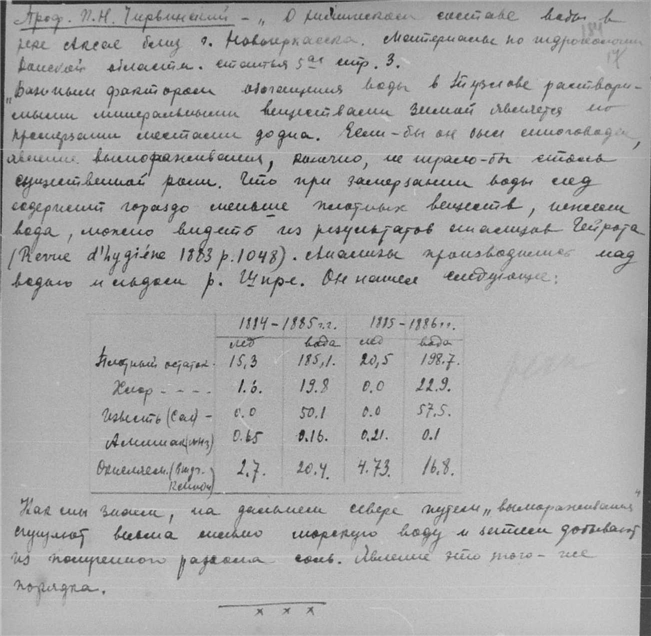 Проф. П.Н. Чирвинский – „О химическом составе воды в
реке Аксае близ г. Новочеркасска. Материалы по гидрологии
Донской области. статья 5ая стр. 3.
„Важным фактором обогащения воды в Тузлове раствори-
мыми минеральными веществами зимой является его
промерзание местами до дна. Если-бы он был многоводен,
явление вымораживания, конечно, не играло-бы столь
существенной роли. Что при замерзании воды лед
содержит гораздо меньше плотных веществ, нежели
вода, можно видеть из результатов анализов
(Revue d'hygiéne 1883 p. 1048). Анализы производились над
водою и льдом р. Шпре. Он нашел следующее:
1884–1885 г.г. 1885–1886 гг.
лед вода лед вода
Плотный остаток. 15,3 185,1. 20,5 198.7.
Хлор - - - - 1.6. 19.8 0.0 22.9.
Известь (CaO) – 0.0 50.1 0.0 57.5.
Аммиак 0.65 0.16. 0.21. 0.1
Окисляем. 2.7. 20.4. 4.73. 16.8.
Как мы знаем, на дальнем севере путем „вымораживания"
сгущают весьма сильно морскую воду и затем добывают
из полученного рассола соль. Явление это того-же
порядка.
× × ×